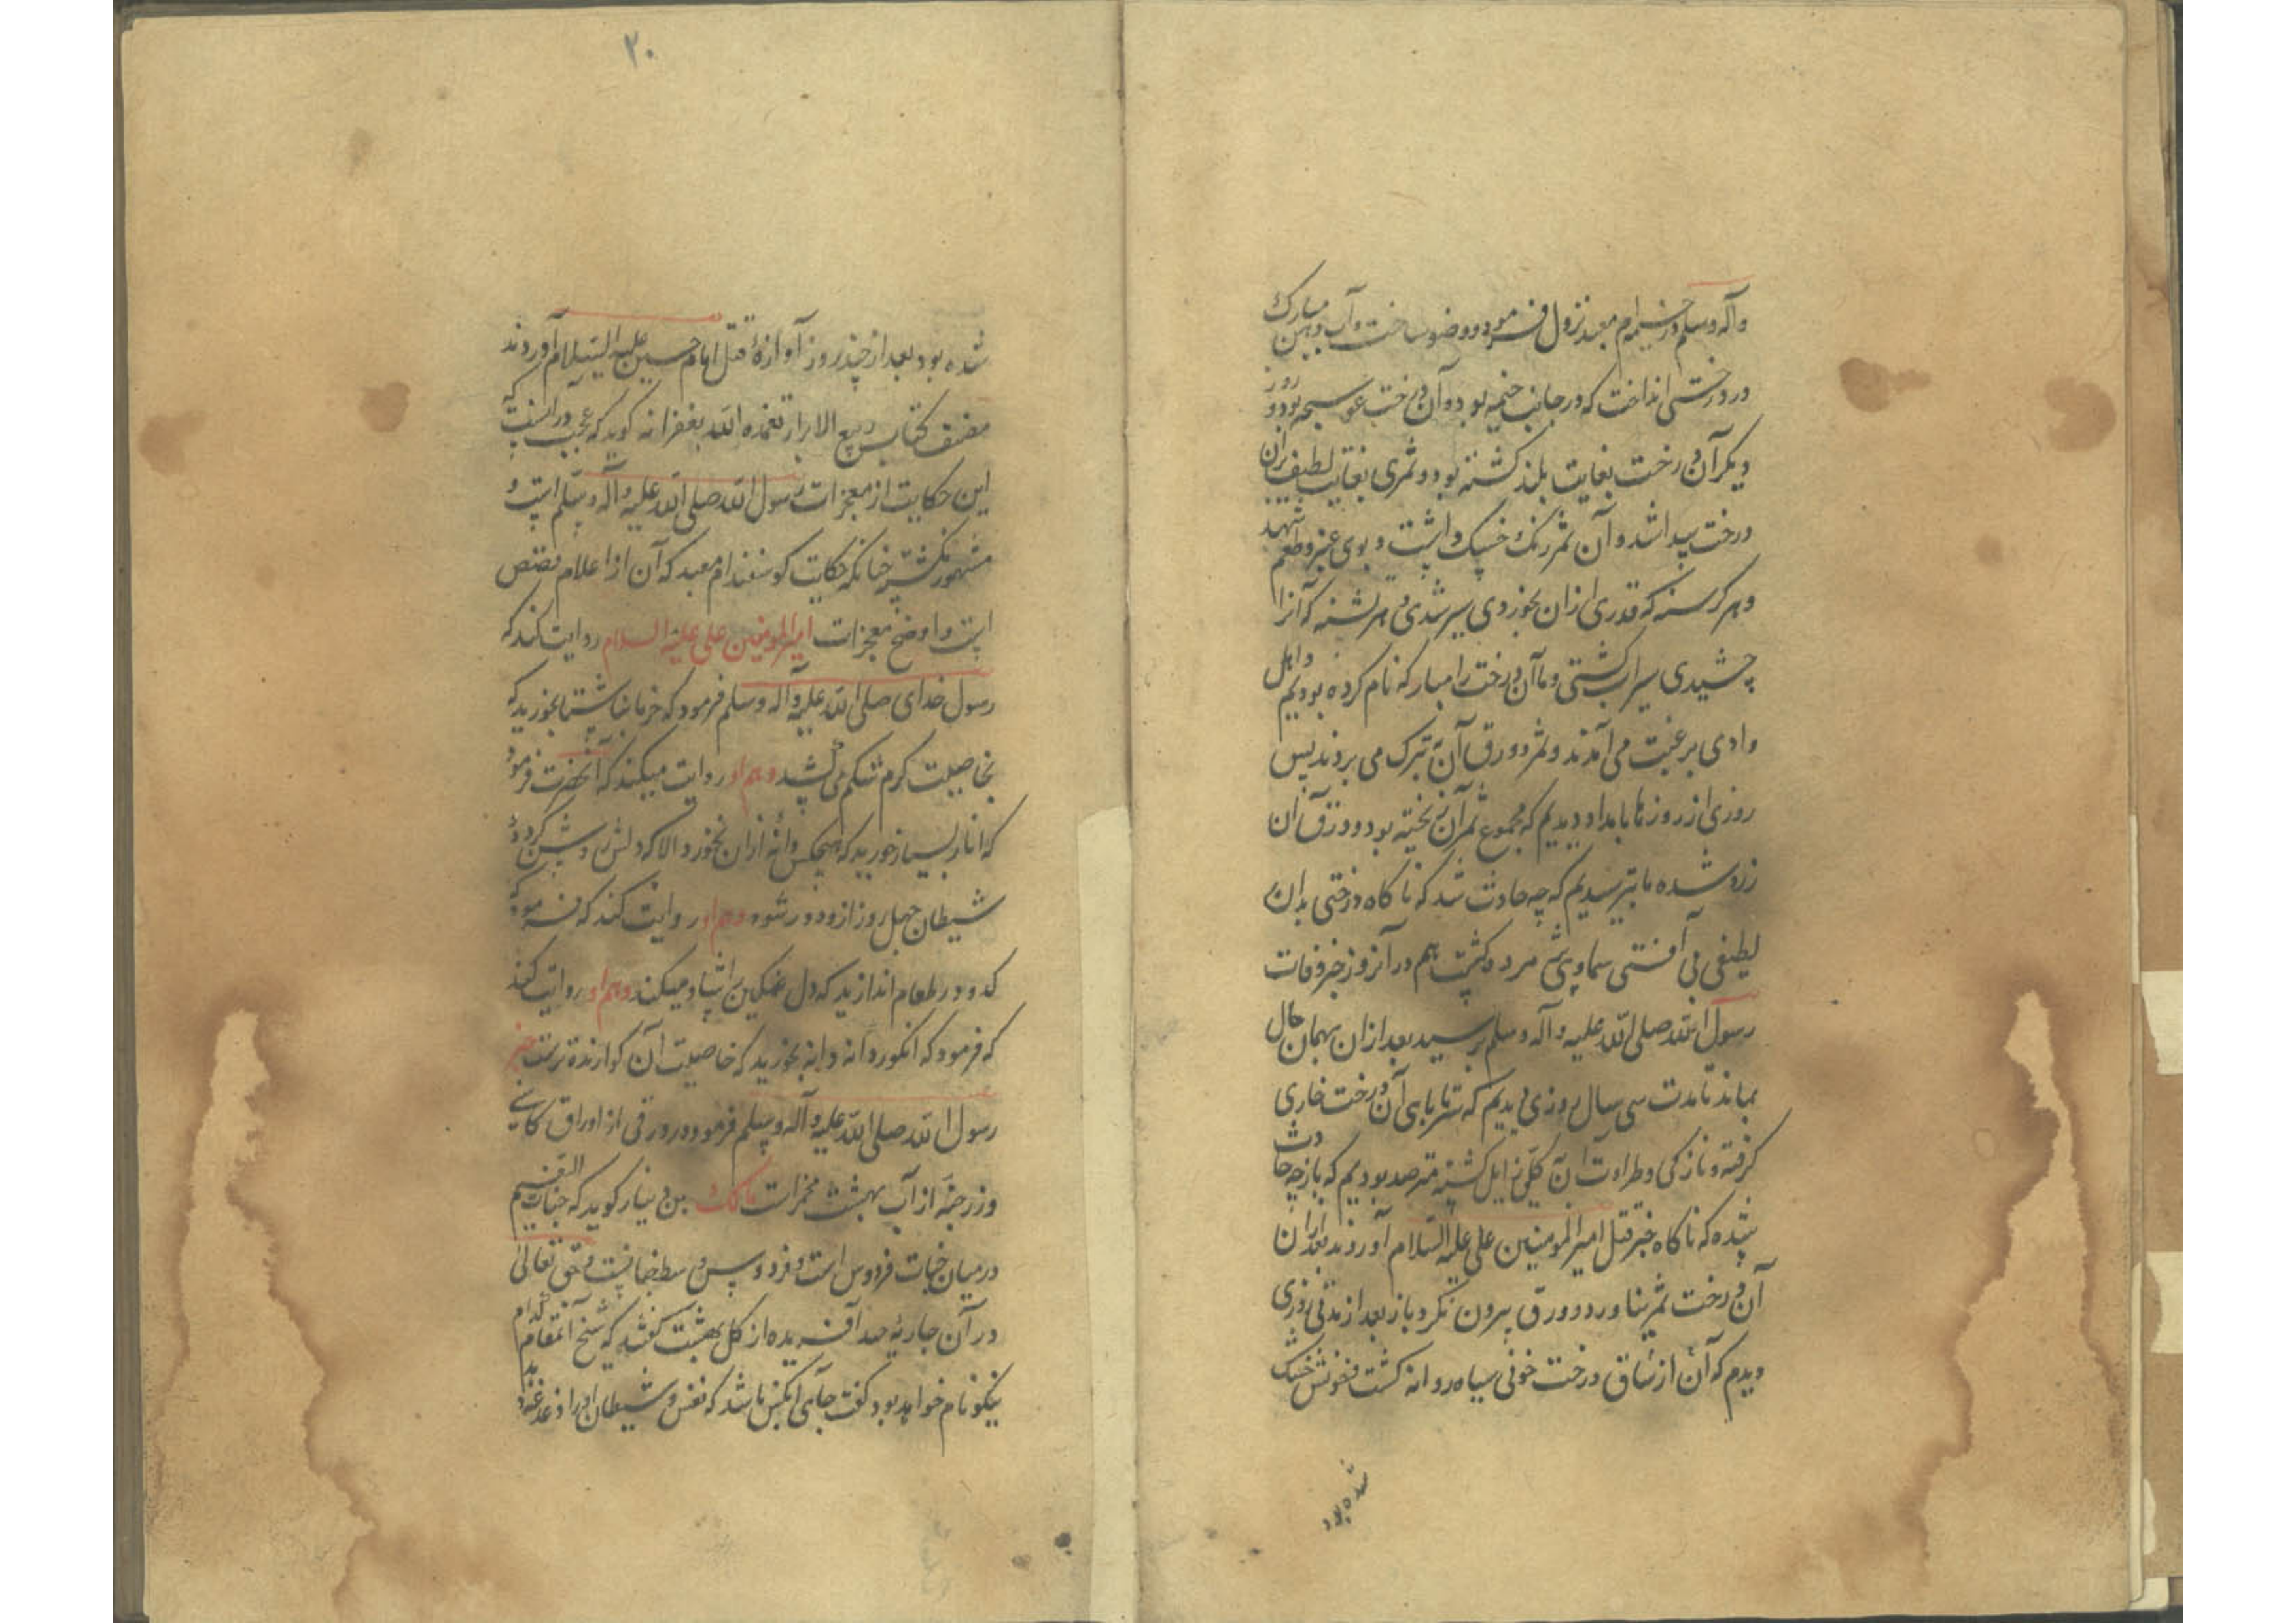 وآله وسلم در خیمه ام معبد نزول فرمود و وضو ساخت و آب دهن مبارک
در درختی انداخت که در جانب خیمه بود و آن درخت عوسجه بود و روز
دیگر آن درخت بغایت بلند گشته بود و ثمری بغایت لطیف بران
درخت پیدا شد و آن ثمر رنگ داشت و بوی عنبر و طعم شهد
و هر گرسنه که قدری ازان بخوردی سیر شدی و هر تشنه که آنرا
چشیدی سیراب گشتی و ما آن درخت را مبارکه نام کرده بودیم و اهل
وادی برغبت می آمدند و ثمر و ورق آن به تبرک می بردند پس
روزی از روزها بامداد دیدیم که مجموع ثمر آن ریخته بود و ورق آن
زرد شده ما بترسیدیم که چه حادث شد که ناکاه درختی بدان
لطیفی بی آفتی سماوی پژمرده گشت هم در آنروز خبر وفات
رسول الله صلی الله علیه وآله وسلم برسید بعد ازان بهمان حال
بماند تا مدت سی سال روزی دیدیم که سر تا پای آن درخت خاری
گرفته و نازکی و طراوت آن کلی زایل گشته مترصد بودیم که باز چه حادث
شده که ناکاه خبر قتل امیرالمومنین علی علیه السلام آوردند بعد ازان
آن درخت ثمر نیاورد و ورق بیرون نکرد باز بعد از مدتی روزی
دیدم که آن از ساق درخت خونی سیاه روانه گشت خشک
شده بود
۲۰
شده بود بعد از چند روز آوازهٔ قتل امام حسین علیه السلام آوردند
مصنف کتاب ربیع الابرار تغمده الله بغفرانه گوید که عجب در آنست که
این حکایت از معجزات رسول الله صلی الله علیه وآله وسلم است و
مشهور نگشته چنانکه حکایت گوسفند ام معبد که آن از اعلام قصص
است و اوضح معجزات امیرالمومنین علی علیه السلام روایت کند که
رسول خدای صلی الله علیه وآله وسلم فرمود که خرما بناشتا بخورید که
بخاصیت کرم شکم می کشد و هم او روایت میکند که آنحضرت فرمود
که انار بسیار خورید که هیچکس دانهٔ ازان نخورد الا که دلش روشن کردد و
شیطان چهل روز ازو دور شود و هم او روایت کند که فرمود که
کدو در طعام اندازید که دل غمگین را شاد میکند و هم او روایت کند
که فرمود که انگور دانه دانه بخورید که خاصیت آن گوارنده ترست خبر
رسول الله صلی الله علیه وآله وسلم فرمود در ورقی از اوراق کاسنی
وزن حبهٔ از آب بهشت مالک بن دینار گوید که جنات النعیم
درمیان جنات فردوس است و حق تعالی
در آن جاریهٔ چند آفریده از گل بهشت گفتند که شیخ آنمقام کدام
نیکونام خواهد بود گفت جای آنکس باشد که نفس و شیطان او را